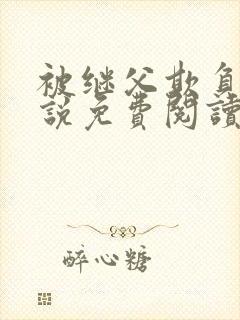 被继父欺负
說免費閱讀
醉心糖